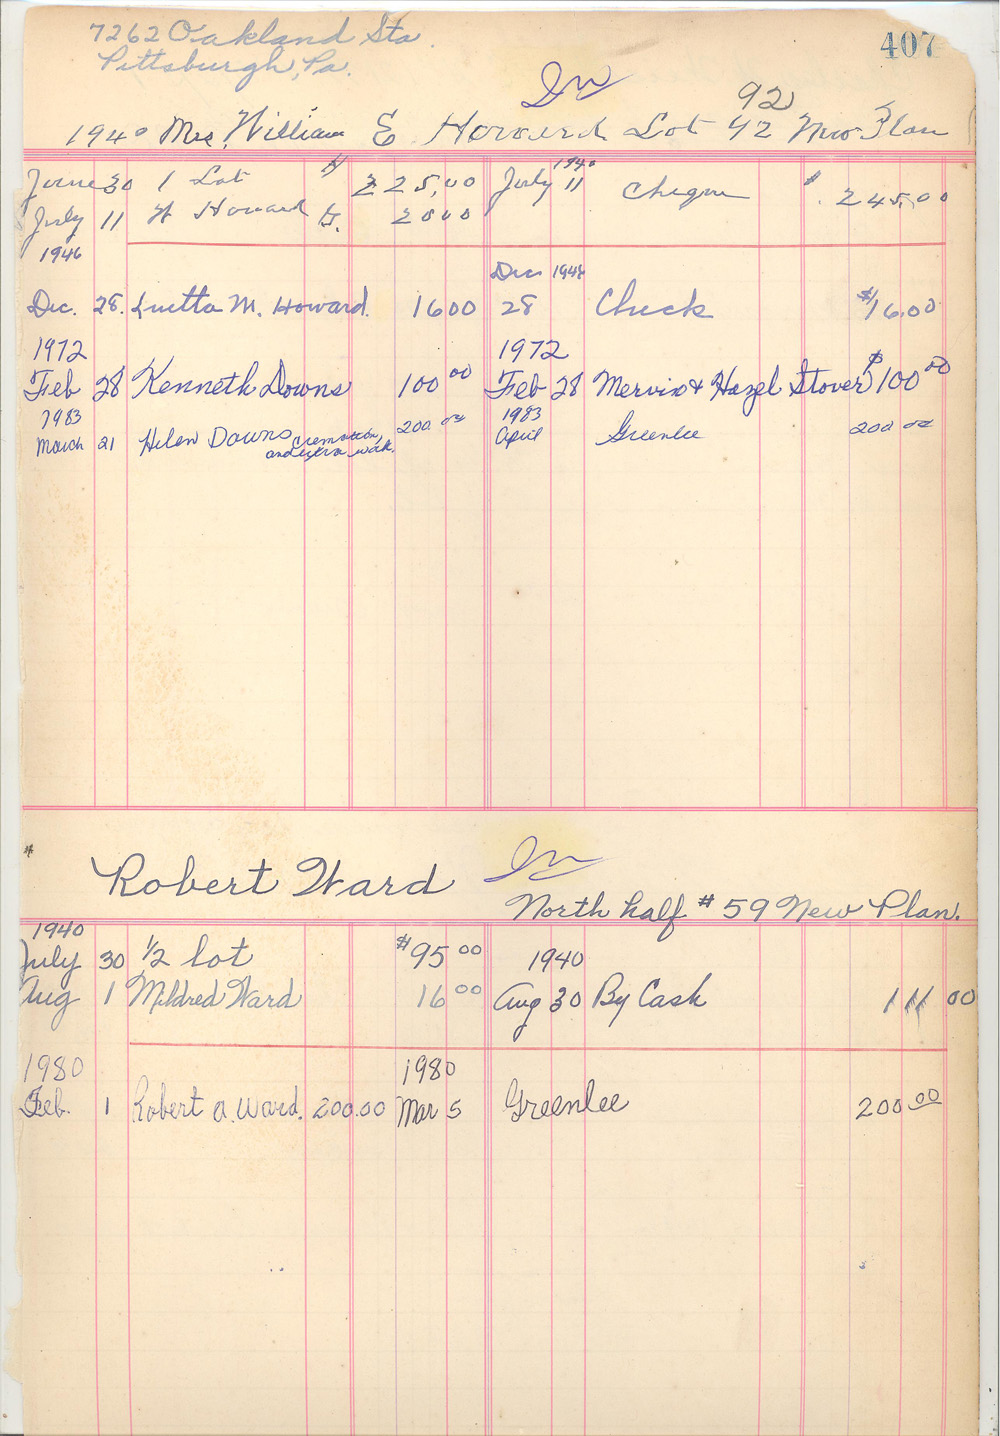 7262 Oakland Sta.
Pittsburgh, Pa.
407
In
92
1940 Mrs. William E Howard Lot 42 New Plan
June 30 1 Lot $ 225.00 July 11 1940 Cheque $ 245.00
July 11 W Howard G. 2000
1946 Dec 1946
Dec. 28. Luetta M. Howard. 1600 28 Check $16.00
1972 1972
Feb 28 Kenneth Downs 100 00 Feb 28 Mervin & Hazel Stover $100 00
1983 1983
March 21 Helen Downs cremation, and extra work. 200 00 April Greenlee 200 00
Robert Ward In
North half # 59 New Plan.
1940
July 30 1/2 lot $95 00 1940
Aug 1 Mildred Ward 16 00 Aug 30 By Cash 111 00
1980 1980
Feb. 1 Robert A. Ward. 200.00 Mar 5 Greenlee 200 00